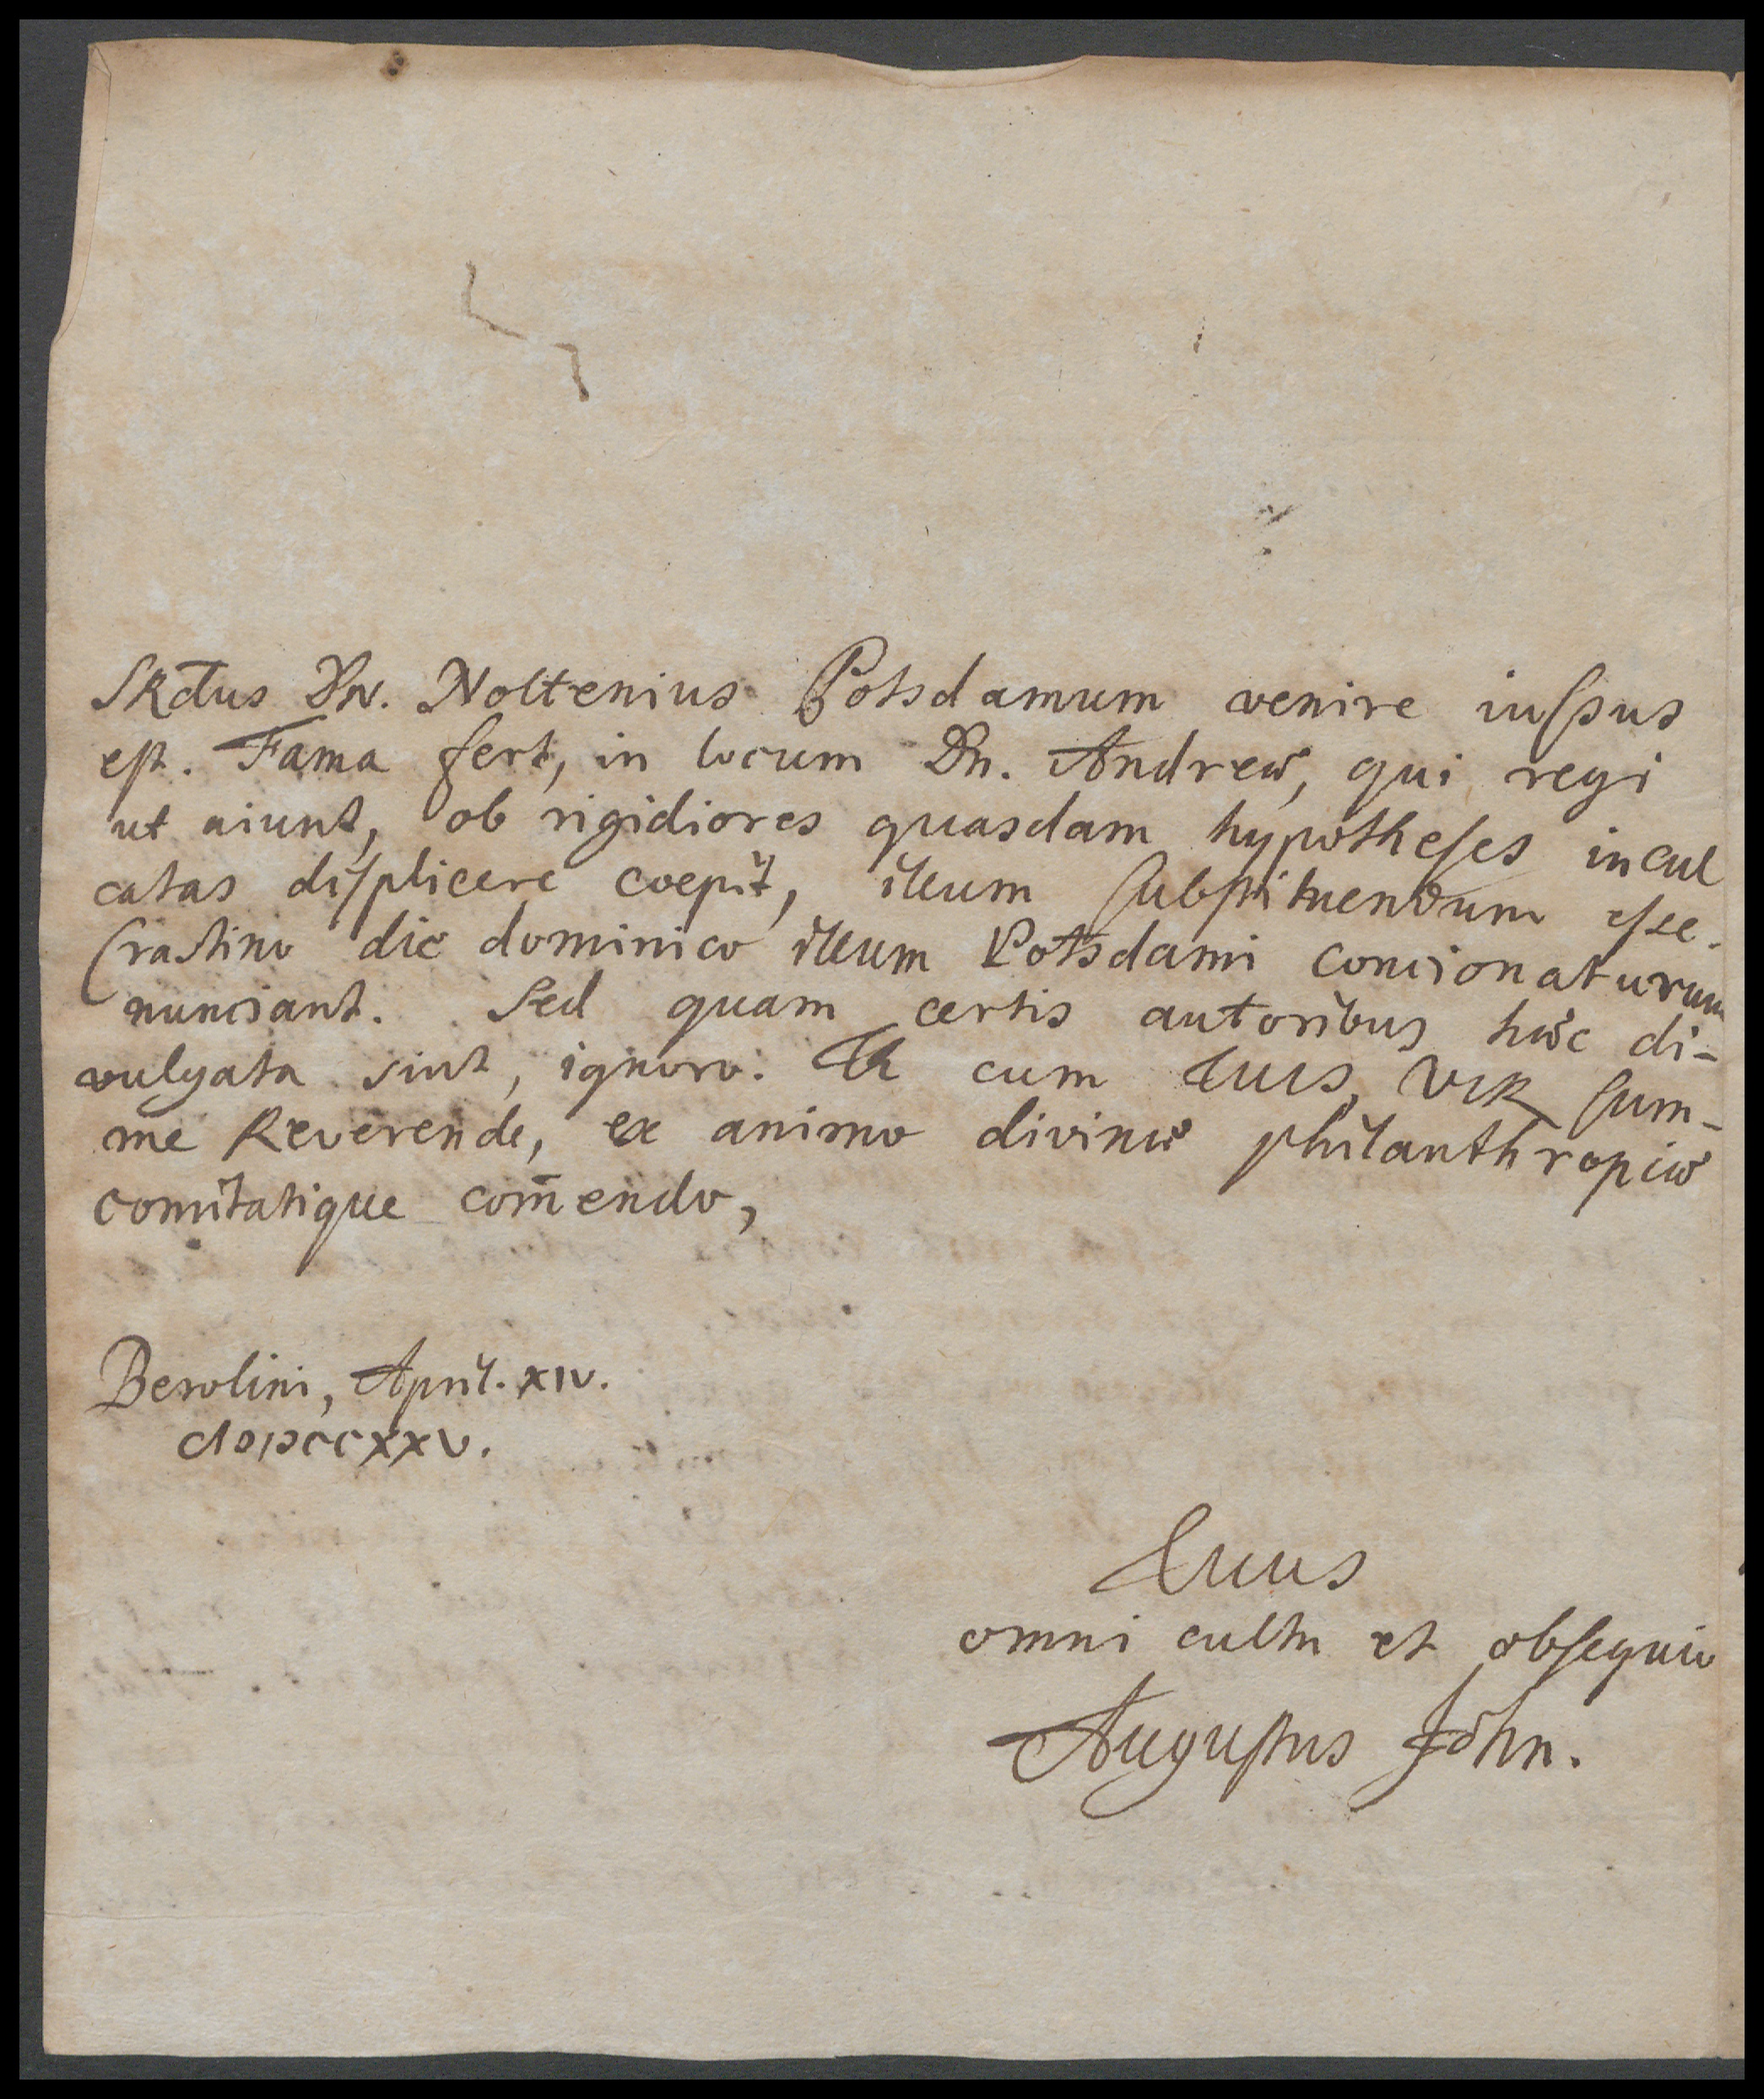 Dn. Noltenius Potsdamum venire iuſsus
eſt. Fama fert, in locum Dn. Andreæ, qui regi
ut aiunt, ob rigidiores quasdam hypotheſes incul
catas diſplicere coepit, illum ſubſtituendum eſse.
Craſtino die dominico illum Potsdami concionaturum
nunciant. Sed quam certis autoribus hæc di-
vulgata sint, ignoro. Te cum tuis, VIR ſum-
me Reverende, ex animo divinæ philanthropiæ
comitatique com̄endo,
Berolini, April. XIV.
CIƆIƆCCXXV.
Tuus
omni cultu et obſequio
Auguſtus John.